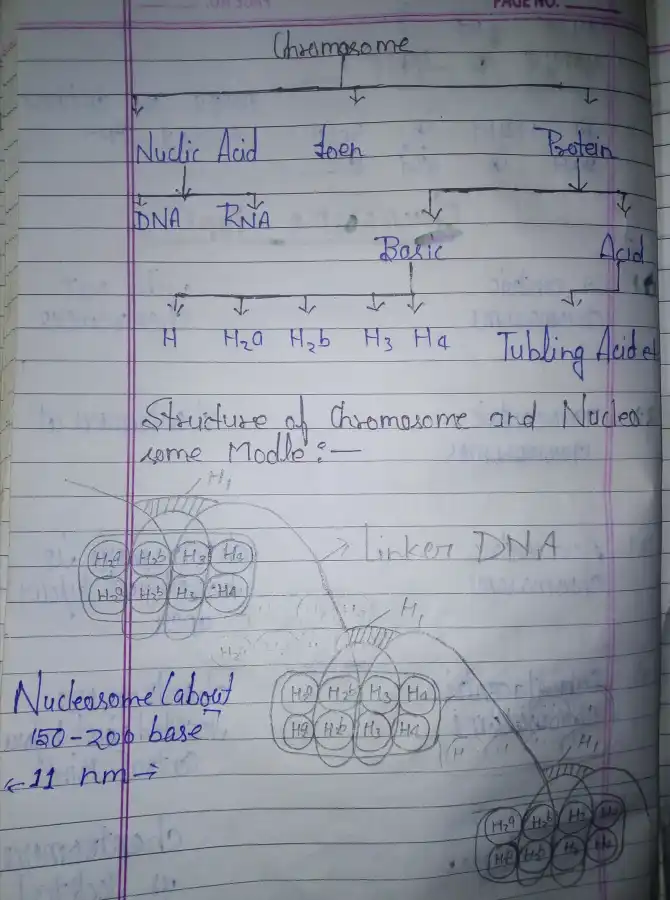 PAGE NO.
Chromosome
Nuclic Acid Ioen Protein
DNA RNA
Basic Acid
H H2a H2b H3 H4 Tubling Acid et
Structure of Chromosome and Nucleo
some Modle :—
H1
H2a H2b H3 H3
H2a H2b H3 H4
Linker DNA
H1
Nucleosome (about
150-200 base
11 nm
H2b H3 H4
H2b H3 H4
H1
H2a H2b